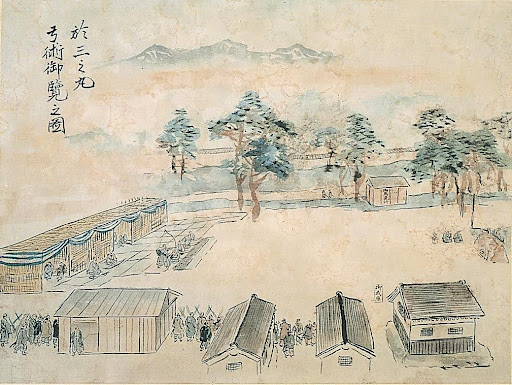 於三之丸
弓術御覧之圖